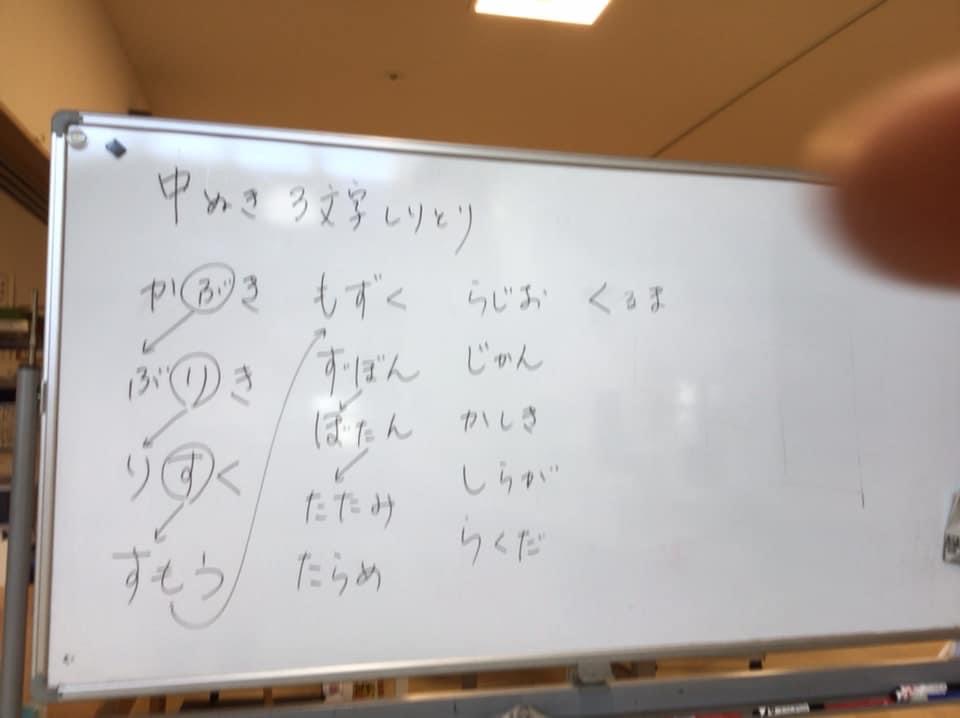 中ぬき3文字しりとり
かぶき
ぶりき
りすく
すもう
もずく
ずぼん
ぼたん
たたみ
たらめ
らじお
じかん
かしき
しらが
らくだ
くるま